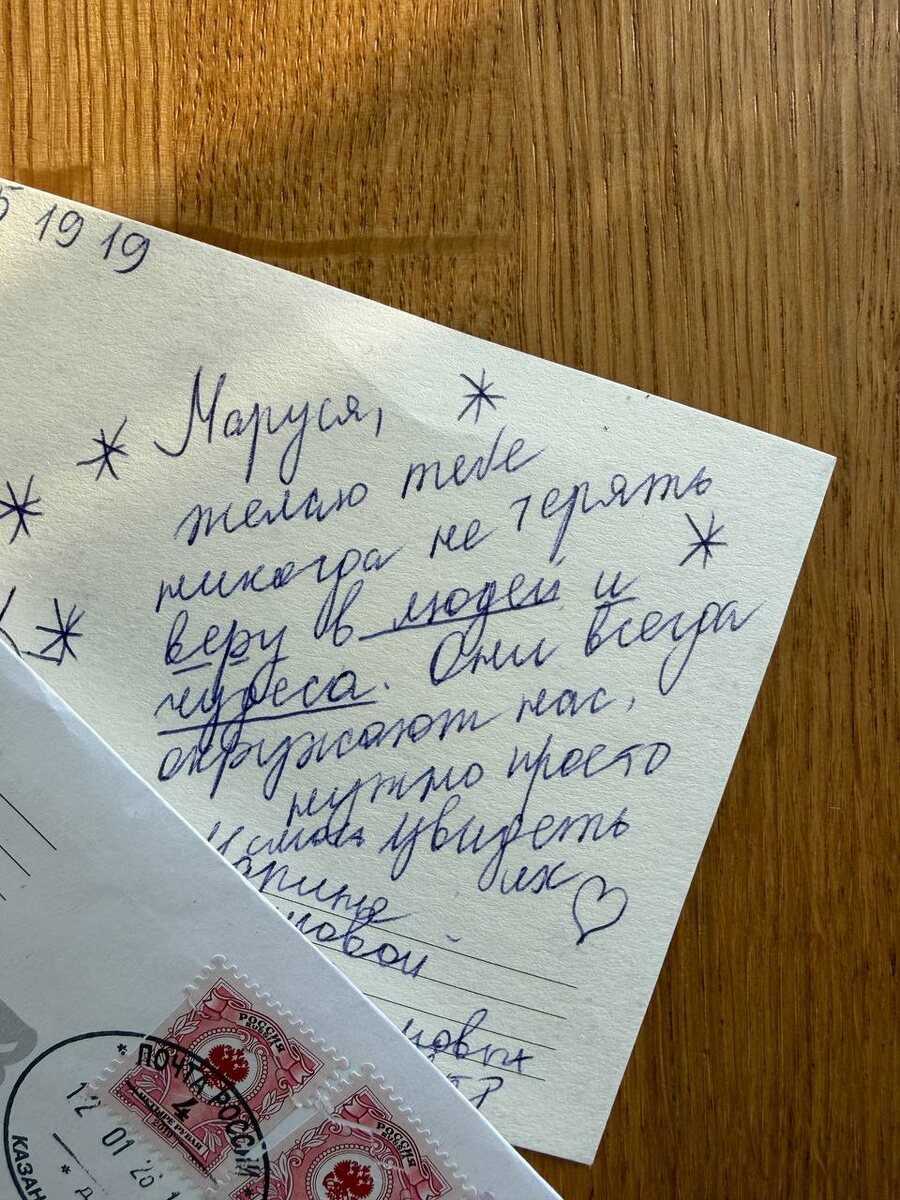 19 19
Маруся,
желаю тебе
никогда не терять
веру в людей и
чудеса. Они всегда
окружают нас,
нужно просто
увидеть
их
овой
РОССИЯ
RUSSIA
4
ЧЕТЫРЕ РУБЛЯ
2019
РОССИЯ
RUSSIA
ПОЧТА РОССИИ
12 01 26 1
КАЗАН